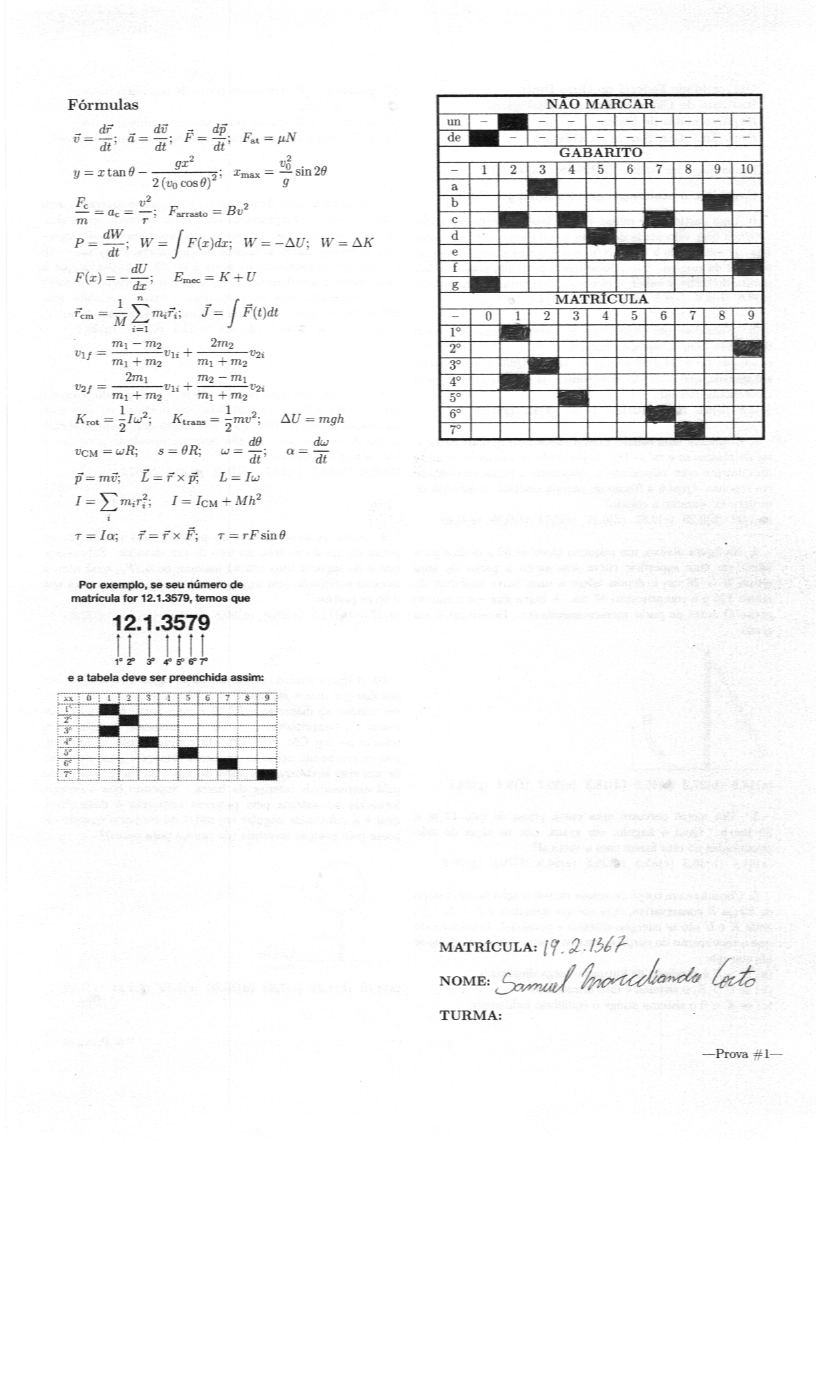 Fórmulas
v⃗ = dr⃗/dt; a⃗ = dv⃗/dt; F⃗ = dp⃗/dt; F_at = μN
y = x tan θ − gx²/2(v₀ cos θ)²; x_max = v₀²/g sin 2θ
F_c/m = a_c = v²/r; F_arrasto = Bv²
P = dW/dt; W = ∫F(x)dx; W = −ΔU; W = ΔK
F(x) = −dU/dx; E_mec = K + U
r⃗_cm = 1/M ∑_{i=1}^{n} m_i r⃗_i; J⃗ = ∫F⃗(t)dt
v_1f = (m₁ − m₂)/(m₁ + m₂) v_1i + 2m₂/(m₁ + m₂) v_2i
v_2f = 2m₁/(m₁ + m₂) v_1i + (m₂ − m₁)/(m₁ + m₂) v_2i
K_rot = 1/2 Iω²; K_trans = 1/2 mv²; ΔU = mgh
v_CM = ωR; s = θR; ω = dθ/dt; α = dω/dt
p⃗ = mv⃗; L⃗ = r⃗ × p⃗; L = Iω
I = ∑_i m_i r_i²; I = I_CM + Mh²
τ = Iα; τ⃗ = r⃗ × F⃗; τ = rF sin θ
Por exemplo, se seu número de
matrícula for 12.1.3579, temos que
12.1.3579
1º 2º 3º 4º 5º 6º 7º
e a tabela deve ser preenchida assim:
xx 0 1 2 3 4 5 6 7 8 9
1º
2º
3º
4º
5º
6º
7º
NÃO MARCAR
un – – – – – – – – –
de – – – – – – – – –
GABARITO
– 1 2 3 4 5 6 7 8 9 10
a
b
c
d
e
f
g
MATRÍCULA
– 0 1 2 3 4 5 6 7 8 9
1º
2º
3º
4º
5º
6º
7º
MATRÍCULA: 19.2.1367
NOME: Samuel
TURMA:
—Prova #1—